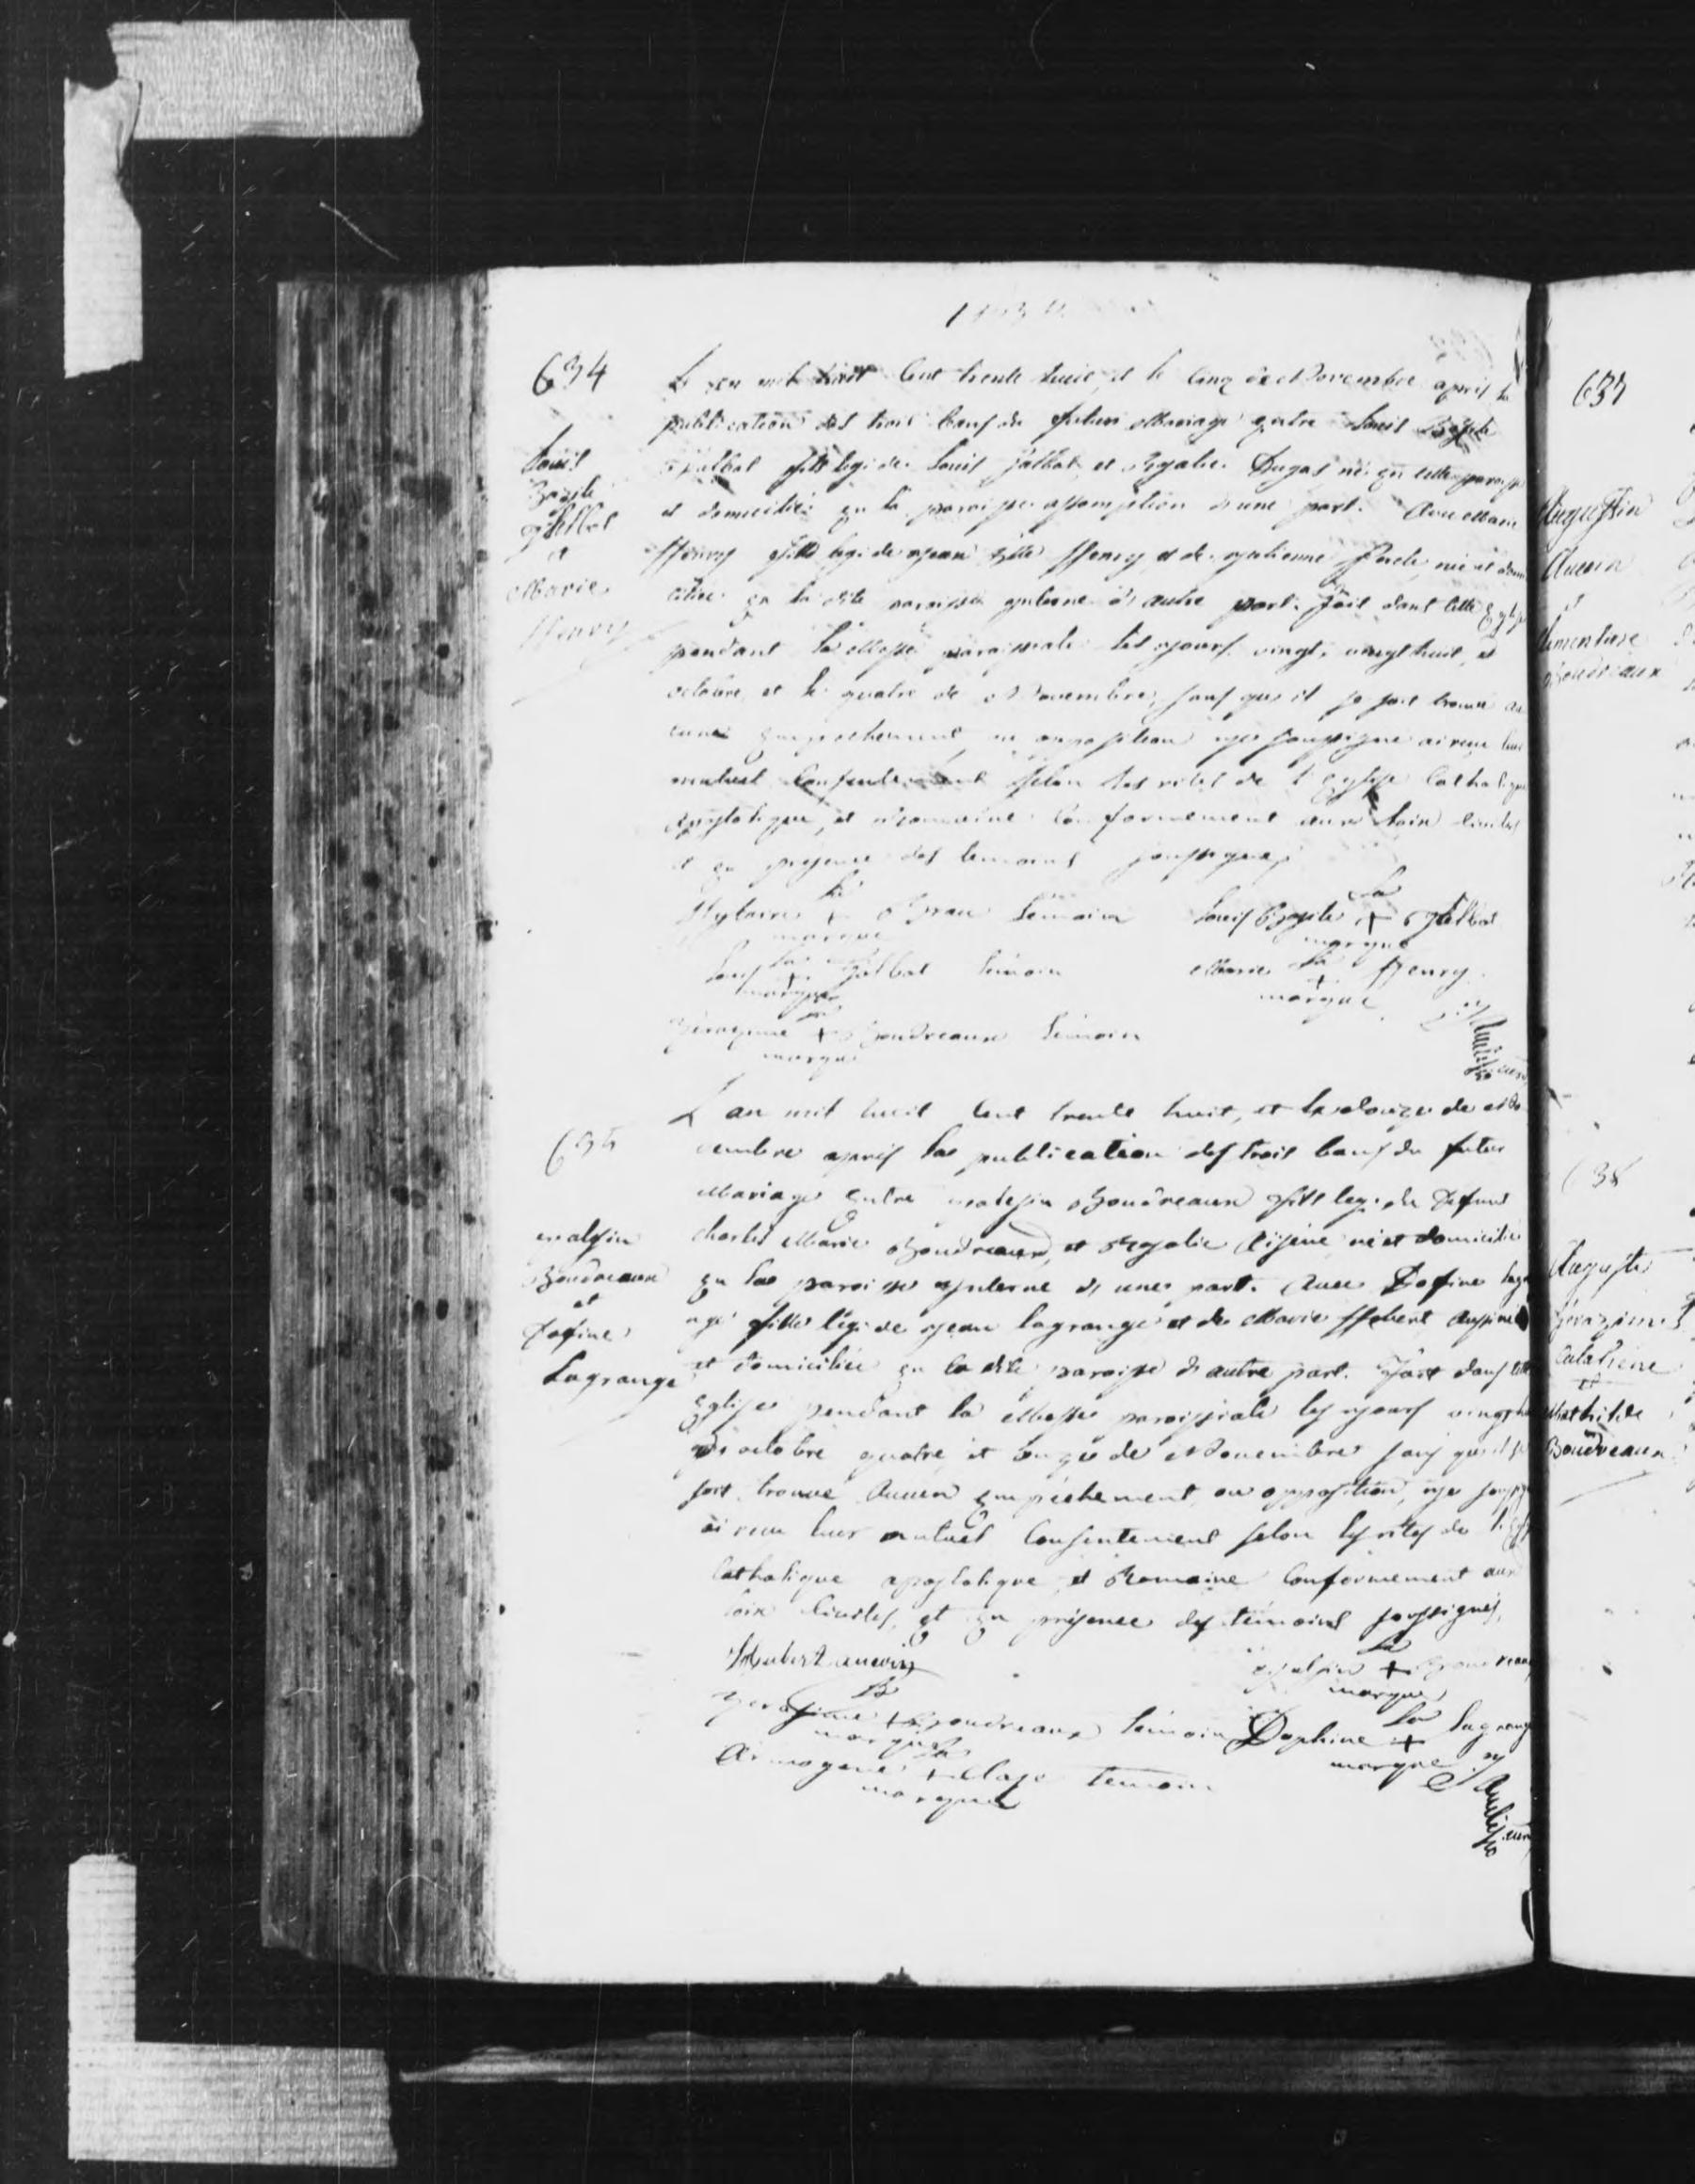 634
L'an mil huit Cent trente huit, et le Cinq de Novembre après la
publication des trois bans du futur Mariage entre Louis Bazile
Talbot fils legi. de Louis Talbot et Rosalie Dugas né en cette paroisse
et domicilié en la paroisse assomption d'une part. Avec Marie
Henry fille legi de Jean Bte Henry et de Julienne née et domi
ciliée en la dite paroisse interne d'autre part. Fait dans cette Eglise
pendant la Messe paroissiale les jours vingt, vingt huit, et
octobre, et le quatre de Novembre, sans que il se soit trouvé au
cune Empechement, ou opposition je soussigné ai reçu leur
mutuel Consentement selon les rites de l'Eglise Catholique
Apostolique, et Romaine Conformement aux Loix Civiles
et en presence des temoins soussignés
Louis
Bazile
Talbot
et
Marie
Henry
Hylaire sa + marque témoin
Louis Bazile Sa + marque Talbot
Sa + marque Talbot témoin
Marie Sa + marque Henry
Gerazime sa + marque Boudreaux témoin
curé
635
L'an mil huit Cent trente huit, et le douze de No
vembre après la publication des trois bans du futur
Mariage Entre Boudreaux fils legi. du Défunt
Charles Marie Boudreaux, et Rosalie né et domicilié
en la paroisse interne d'une part. Avec Dofine Lagr
ange fille légi. de Jean Lagrange et de Marie Hebert Aussi née
et domiciliée en la dite paroisse d'autre part. Fait dans cette
Eglise pendant la Messe paroissiale les jours vingt hu
d'octobre quatre, et onze de Novembre sans que il se
soit trouvé Aucun Empêchement, ou opposition, je soussig
ai reçu leur mutuel Consentement selon les rites de l'Egl
Catholique apostolique, et Romaine Conformement aux
Loix Civiles, et en présence des témoins soussignés,
Boudreaux
et
Dofine
Lagrange
Hubert aucoin
Sa + marque Boudreaux
Gerasime Sa + marque Boudreaux témoin
Dophine Sa + marque Lagrange
Sa + marque temoin
curé
637
Augustin
Aucoin
et
Clementine
Boudreaux
638
Auguste
Gerazime
et
Mathilde
Boudreaux